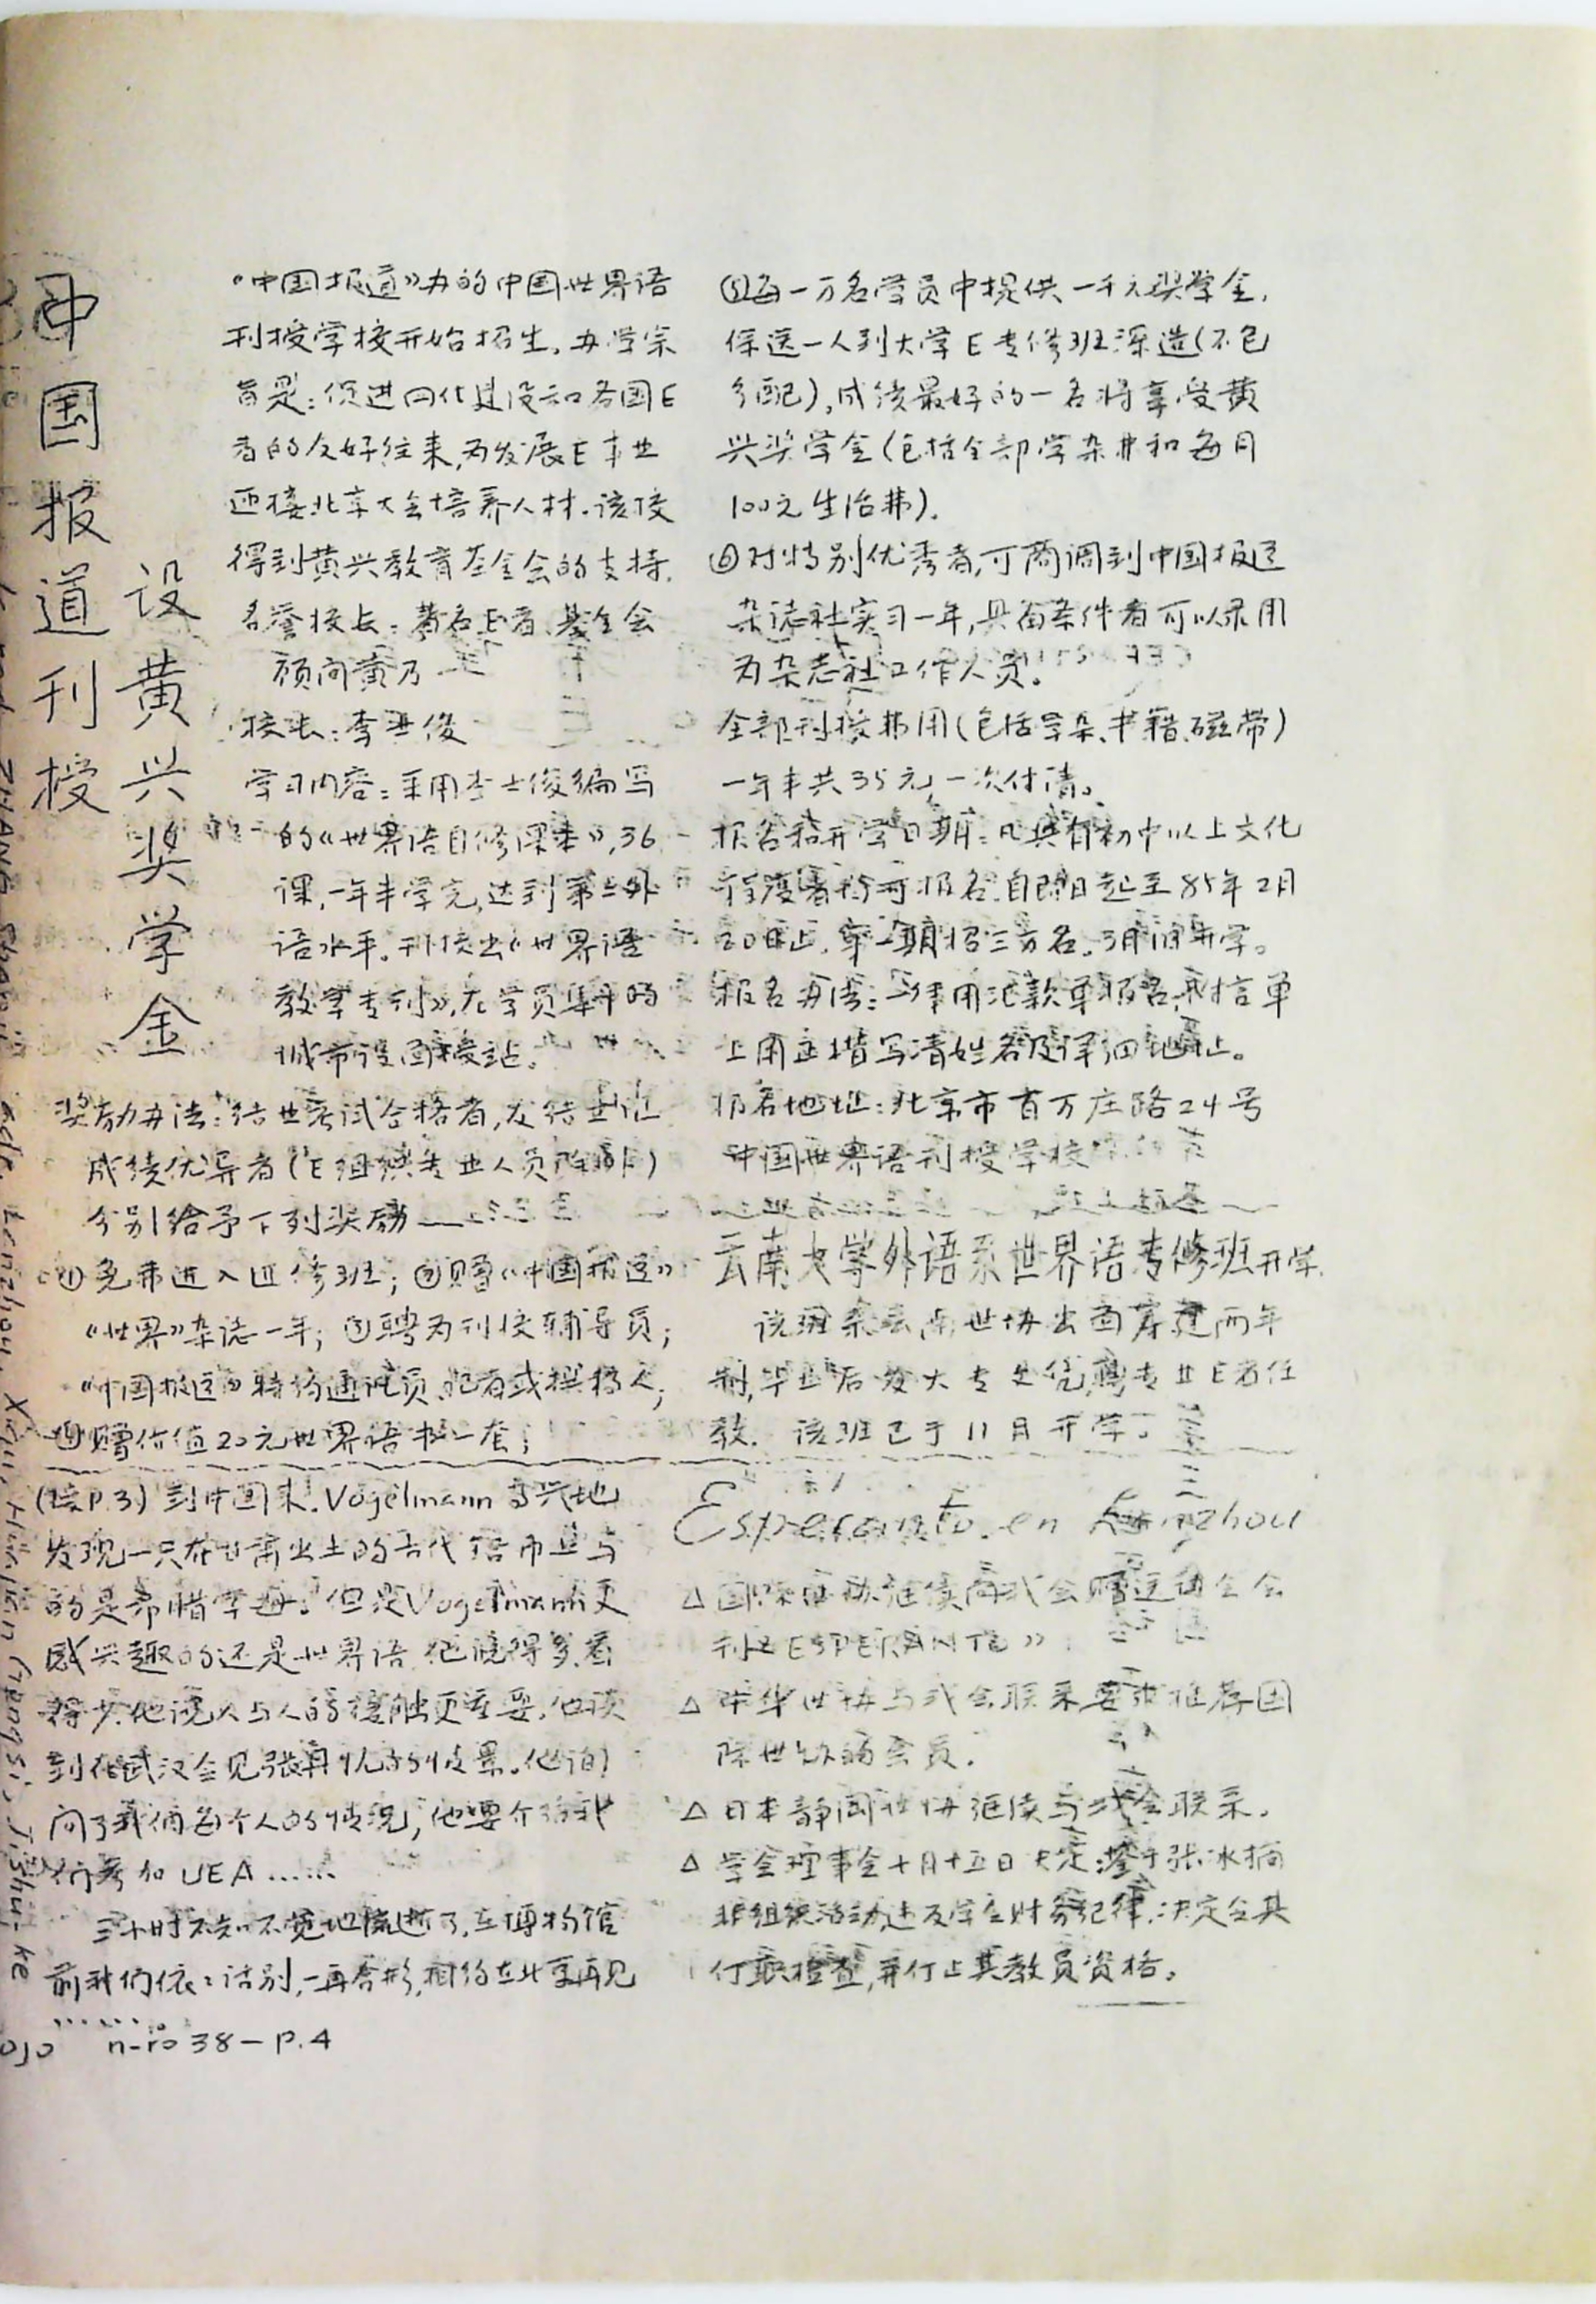 中国报道刊授
设黄兴奖学金
《中国报道》办的中国世界语
刊授学校开始招生,办学宗
旨是:促进四化建设和各国E
者的友好往来,为发展E事业
迎接北京大会培养人材。该校
得到黄兴教育基金会的支持.
名誉校长:著名E者、基金会
顾问黄乃
校长:李士俊
学习内容:采用李士俊编写
的《世界语自修课本》,36
课,一年半学完,达到第二外
语水平。刊校出《世界语
教学专刊》,在学员集中的
城市设面授站。
奖励办法:结业考试合格者,发结业证
成绩优异者(E组织专业人员除外)
分别给予下列奖励——
①免费进入进修班;②赠《中国报道》
《世界》杂誌一年;③聘为刊校辅导员;
《中国报道》特约通讯员、记者或撰稿人;
④赠价值20元世界语书一套;
⑤每一万名学员中提供一千元奖学金,
保送一人到大学E专修班深造(不包
分配),成绩最好的一名将享受黄
兴奖学金(包括全部学杂费和每月
100元生活费).
⑥对特别优秀者,可商调到中国报道
杂誌社实习一年,具备条件者可以录用
为杂志社工作人员。
全部刊授费用(包括学杂、书籍、磁带)
一年半共35元,一次付清。
报名和开学日期:凡具有初中以上文化
程度者均可报名.自即日起至85年2月
20日止,第一期招三万名。3月份开学。
报名办法:一律用汇款单报名,
上用正楷写清姓名及详细地址。
报名地址:北京市百万庄路24号
中国世界语刊授学校
云南大学外语系世界语专修班开学.
该班系云南世协出面筹建两年
制,毕业后发大专文凭,专业E者任
教. 该班已于11月开学。
(接P.3) 到中国来.Vogelmann高兴地
发现一只在甘肃出土的古代铅币上写
的是希腊字母。但是Vogelmann更
感兴趣的还是世界语.他说得多,看
得少.他说人与人的接触更重要.他谈
到在武汉会见张再忆的情景。他询
问了我们每个人的情况,他要介绍我
们参加UEA……
三小时不知不觉地流逝了,在博物馆
前我们依:话别,一再合影,相约在北京再见
……
Esperanto en Lanzhou
△ 国际世协继续向我会赠送
刊《ESPERANTO》
△ 与我会联系要求推荐国
际世协的会员.
△ 日本静冈世协继续与我会联系.
△ 学会理事会十月十五日决定:鉴于张冰摘
非组织活动,违反学会财务纪律,决定令其
停职检查,并停止其教员资格。
ojo n-ro 38 — P.4